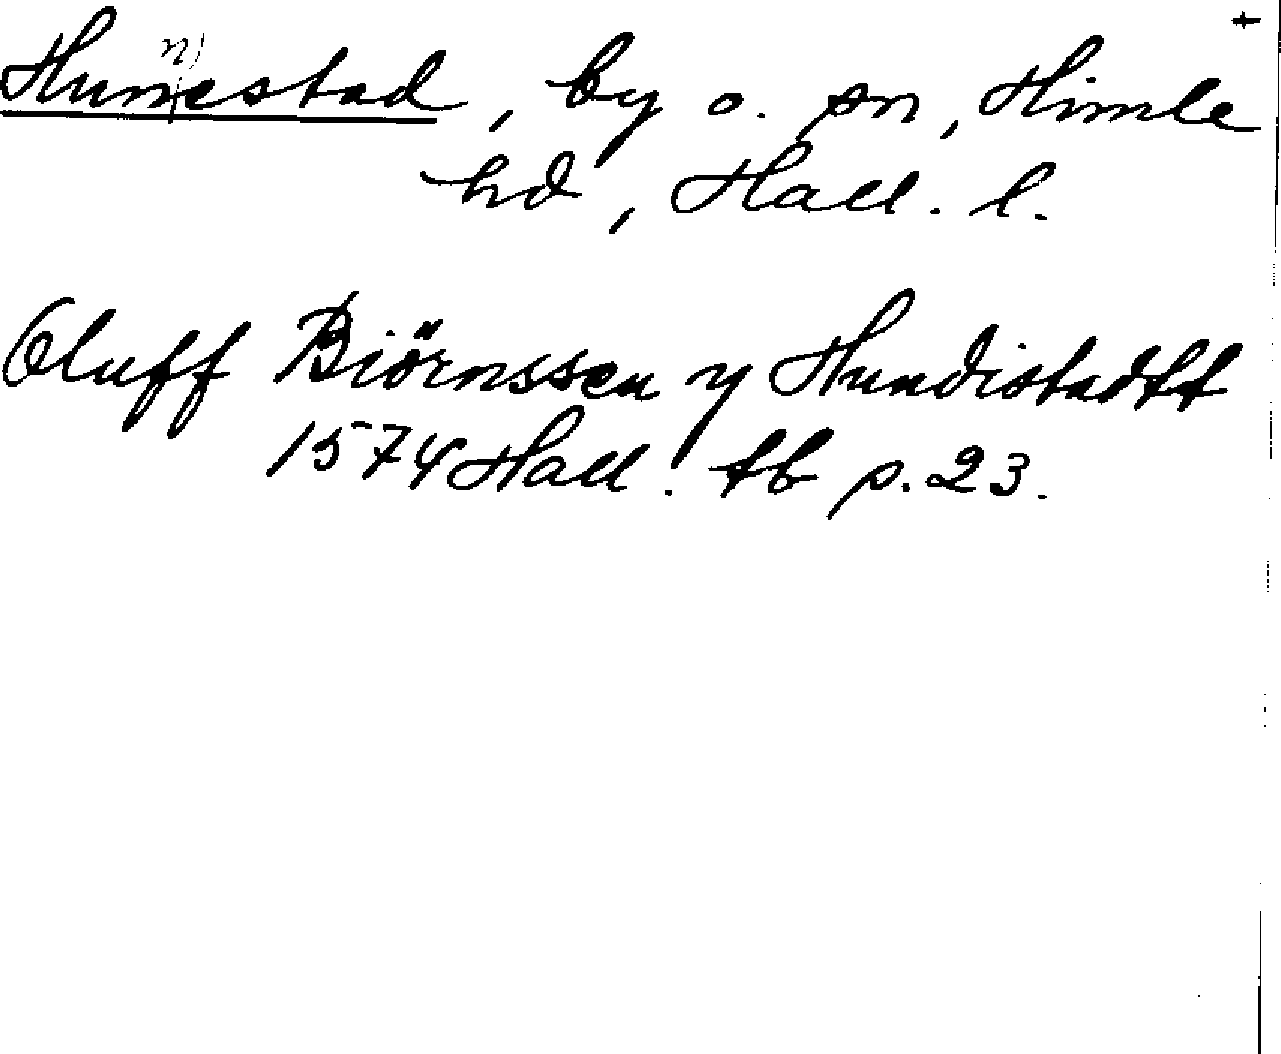 Hunnestad, by o. sn, Himle
hd, Hall. l.
Oluff Biörnssen y Hundistadtt
1574 Hall. tb p. 23.